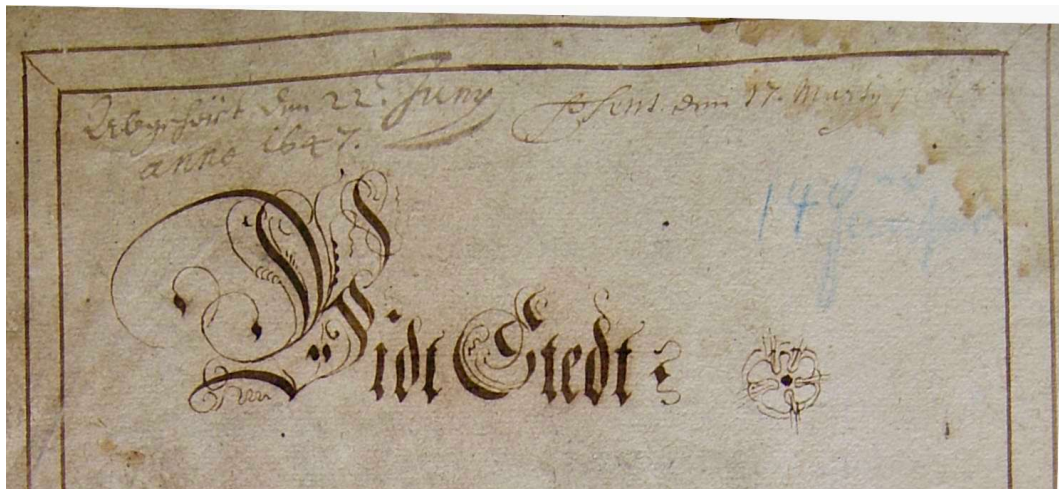 Abgehört den 22. Juny
anno 1647.
den 17. Marty
14
Widt Stedt